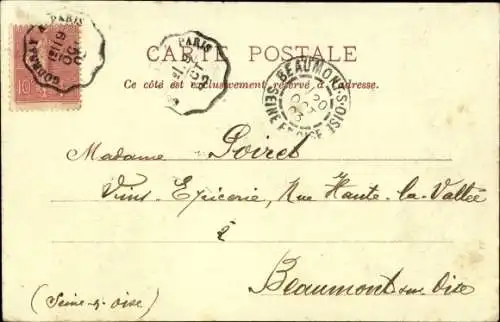 GOURNAY A PARIS
PARIS
CARTE POSTALE
BEAUMONT-S-OISE
SEINE ET OISE
20
OCT
03
Ce côté est exclusivement réservé à l'adresse.
10
Madame Poiret
Vins-Epicerie, Rue Haute-la-Vallée
à
Beaumont sur Oise
(Seine-&-Oise)